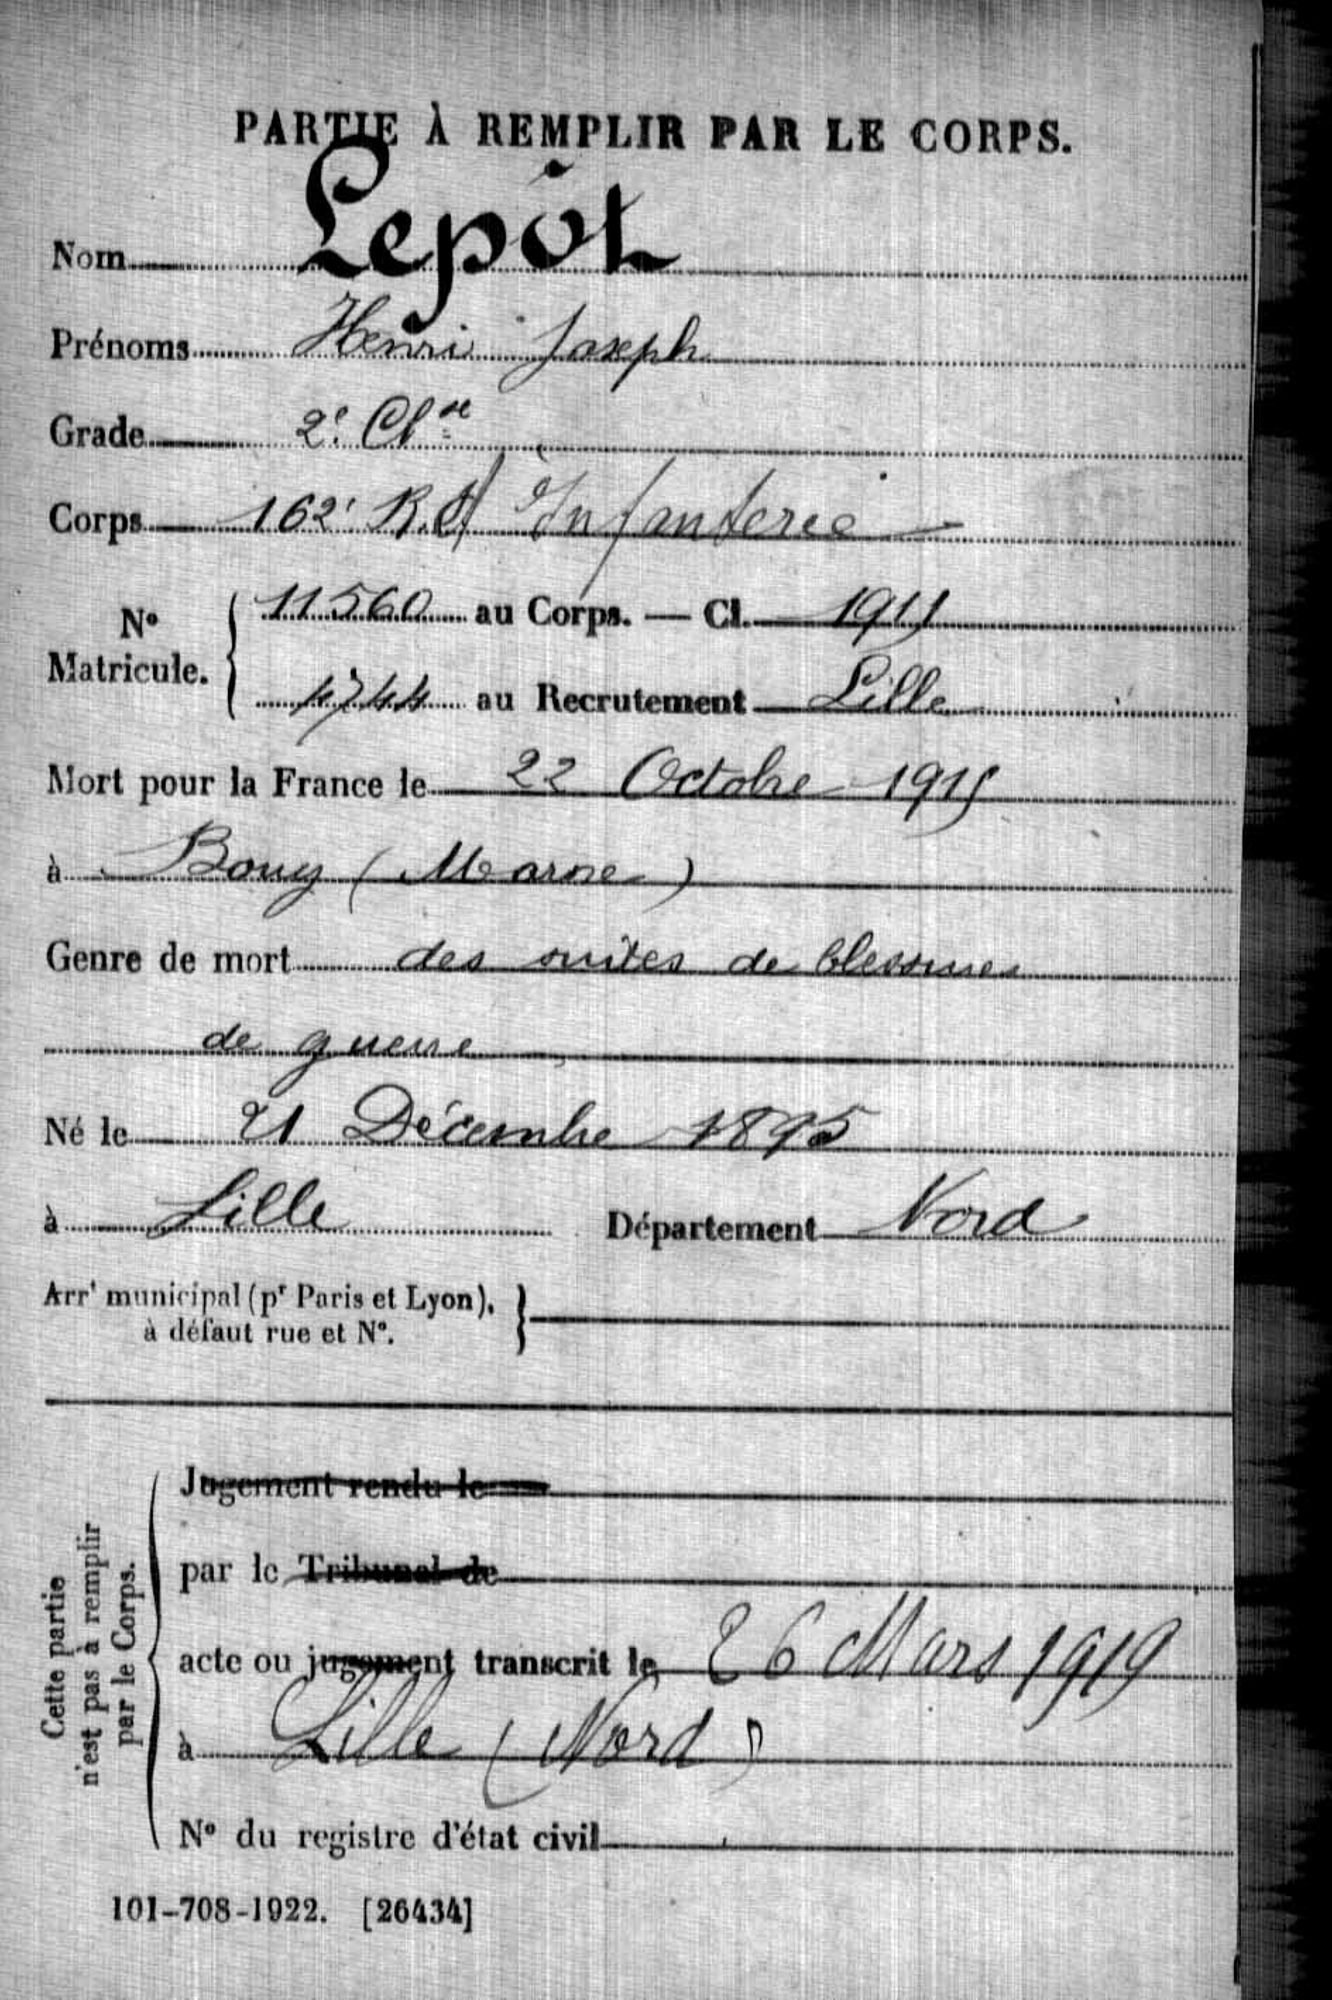 PARTIE À REMPLIR PAR LE CORPS.
Nom Lepôt
Prénoms Henri Joseph
Grade 2e Clse
Corps 162e R. d'Infanterie
No Matricule. 11560 au Corps. — Cl. 1915
4744 au Recrutement Lille
Mort pour la France le 22 Octobre 1915
à Bouy (Marne)
Genre de mort des suites de blessures
de guerre
Né le 21 Décembre 1895
à Lille Département Nord
Arrt municipal (pr Paris et Lyon),
à défaut rue et No.
Cette partie
n'est pas à remplir
par le Corps.
Jugement rendu le
par le Tribunal de
acte ou jugement transcrit le 26 Mars 1919
à Lille (Nord)
No du registre d'état civil
101-708-1922. [26434]